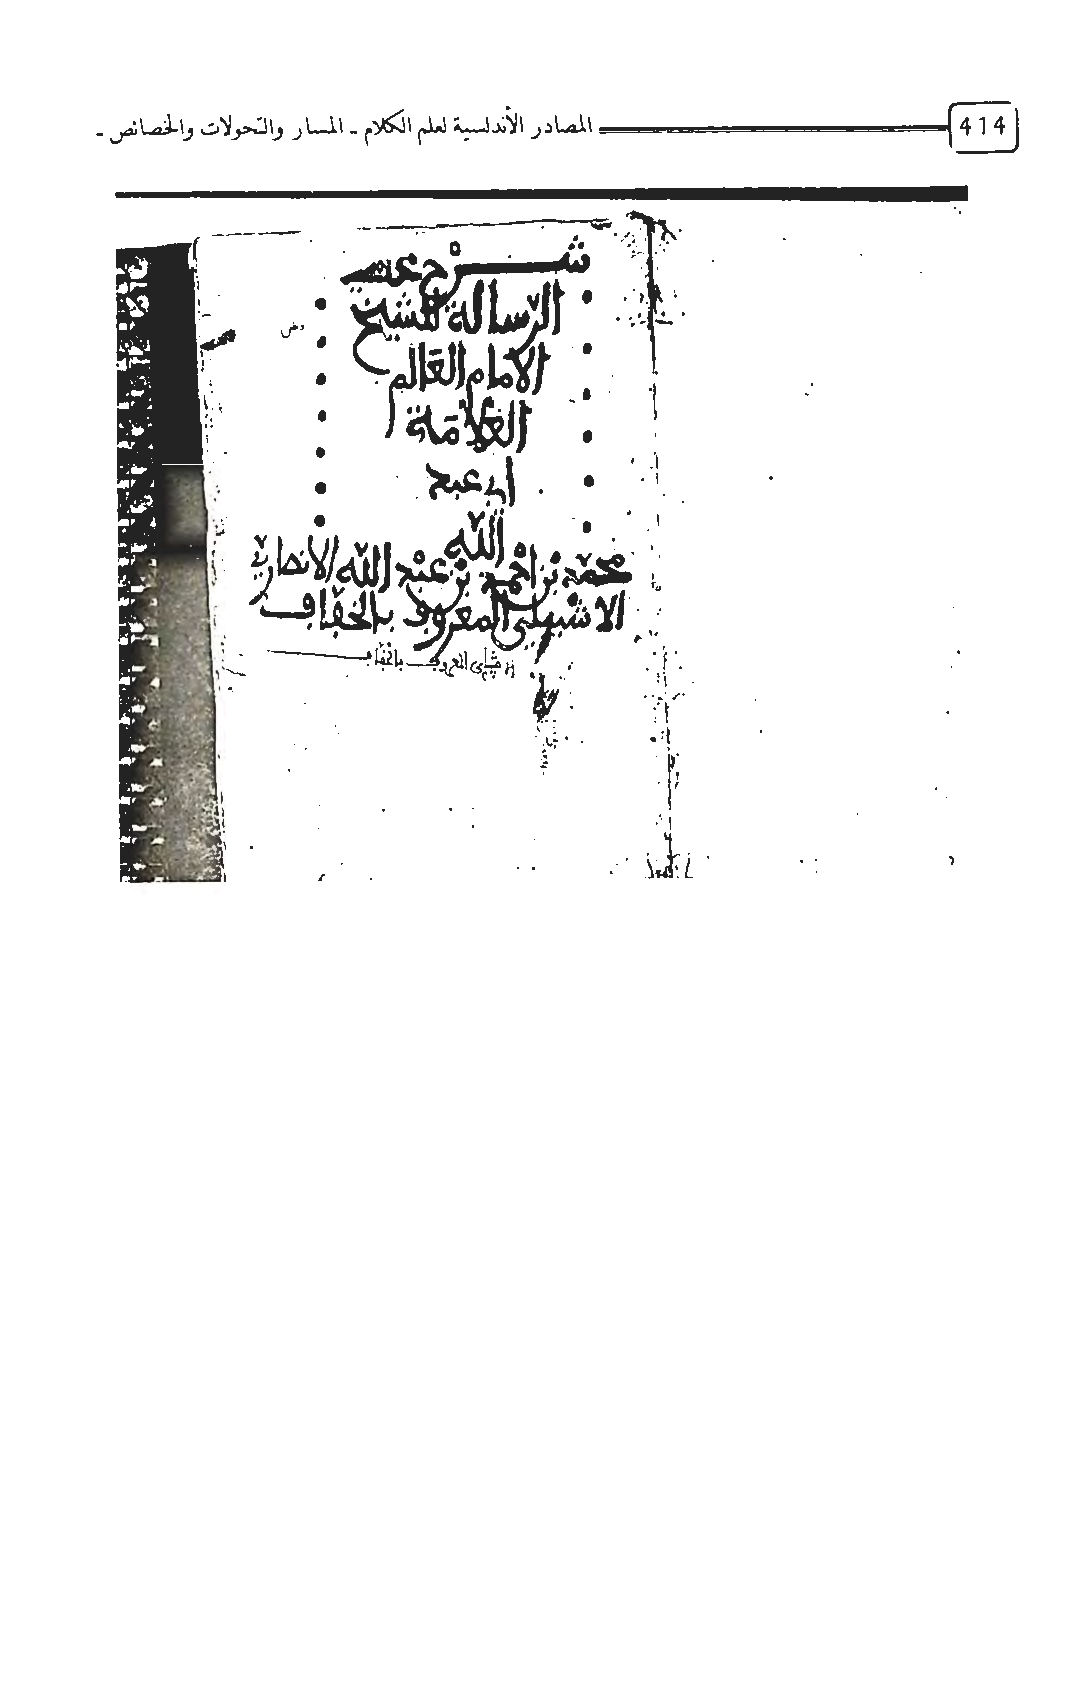 414 المصادر الأندلسية لعلم الكلام - المسار والتحولات والخصائص -
شرح عقيدة
الرسالة للشيخ
الامام العالم
العلامة
ابي عبد
الله
محمد بن احمد بن عبد الله الانصاري
الاشبيلي المعروف بالخفاف
المعروف بالخفاف